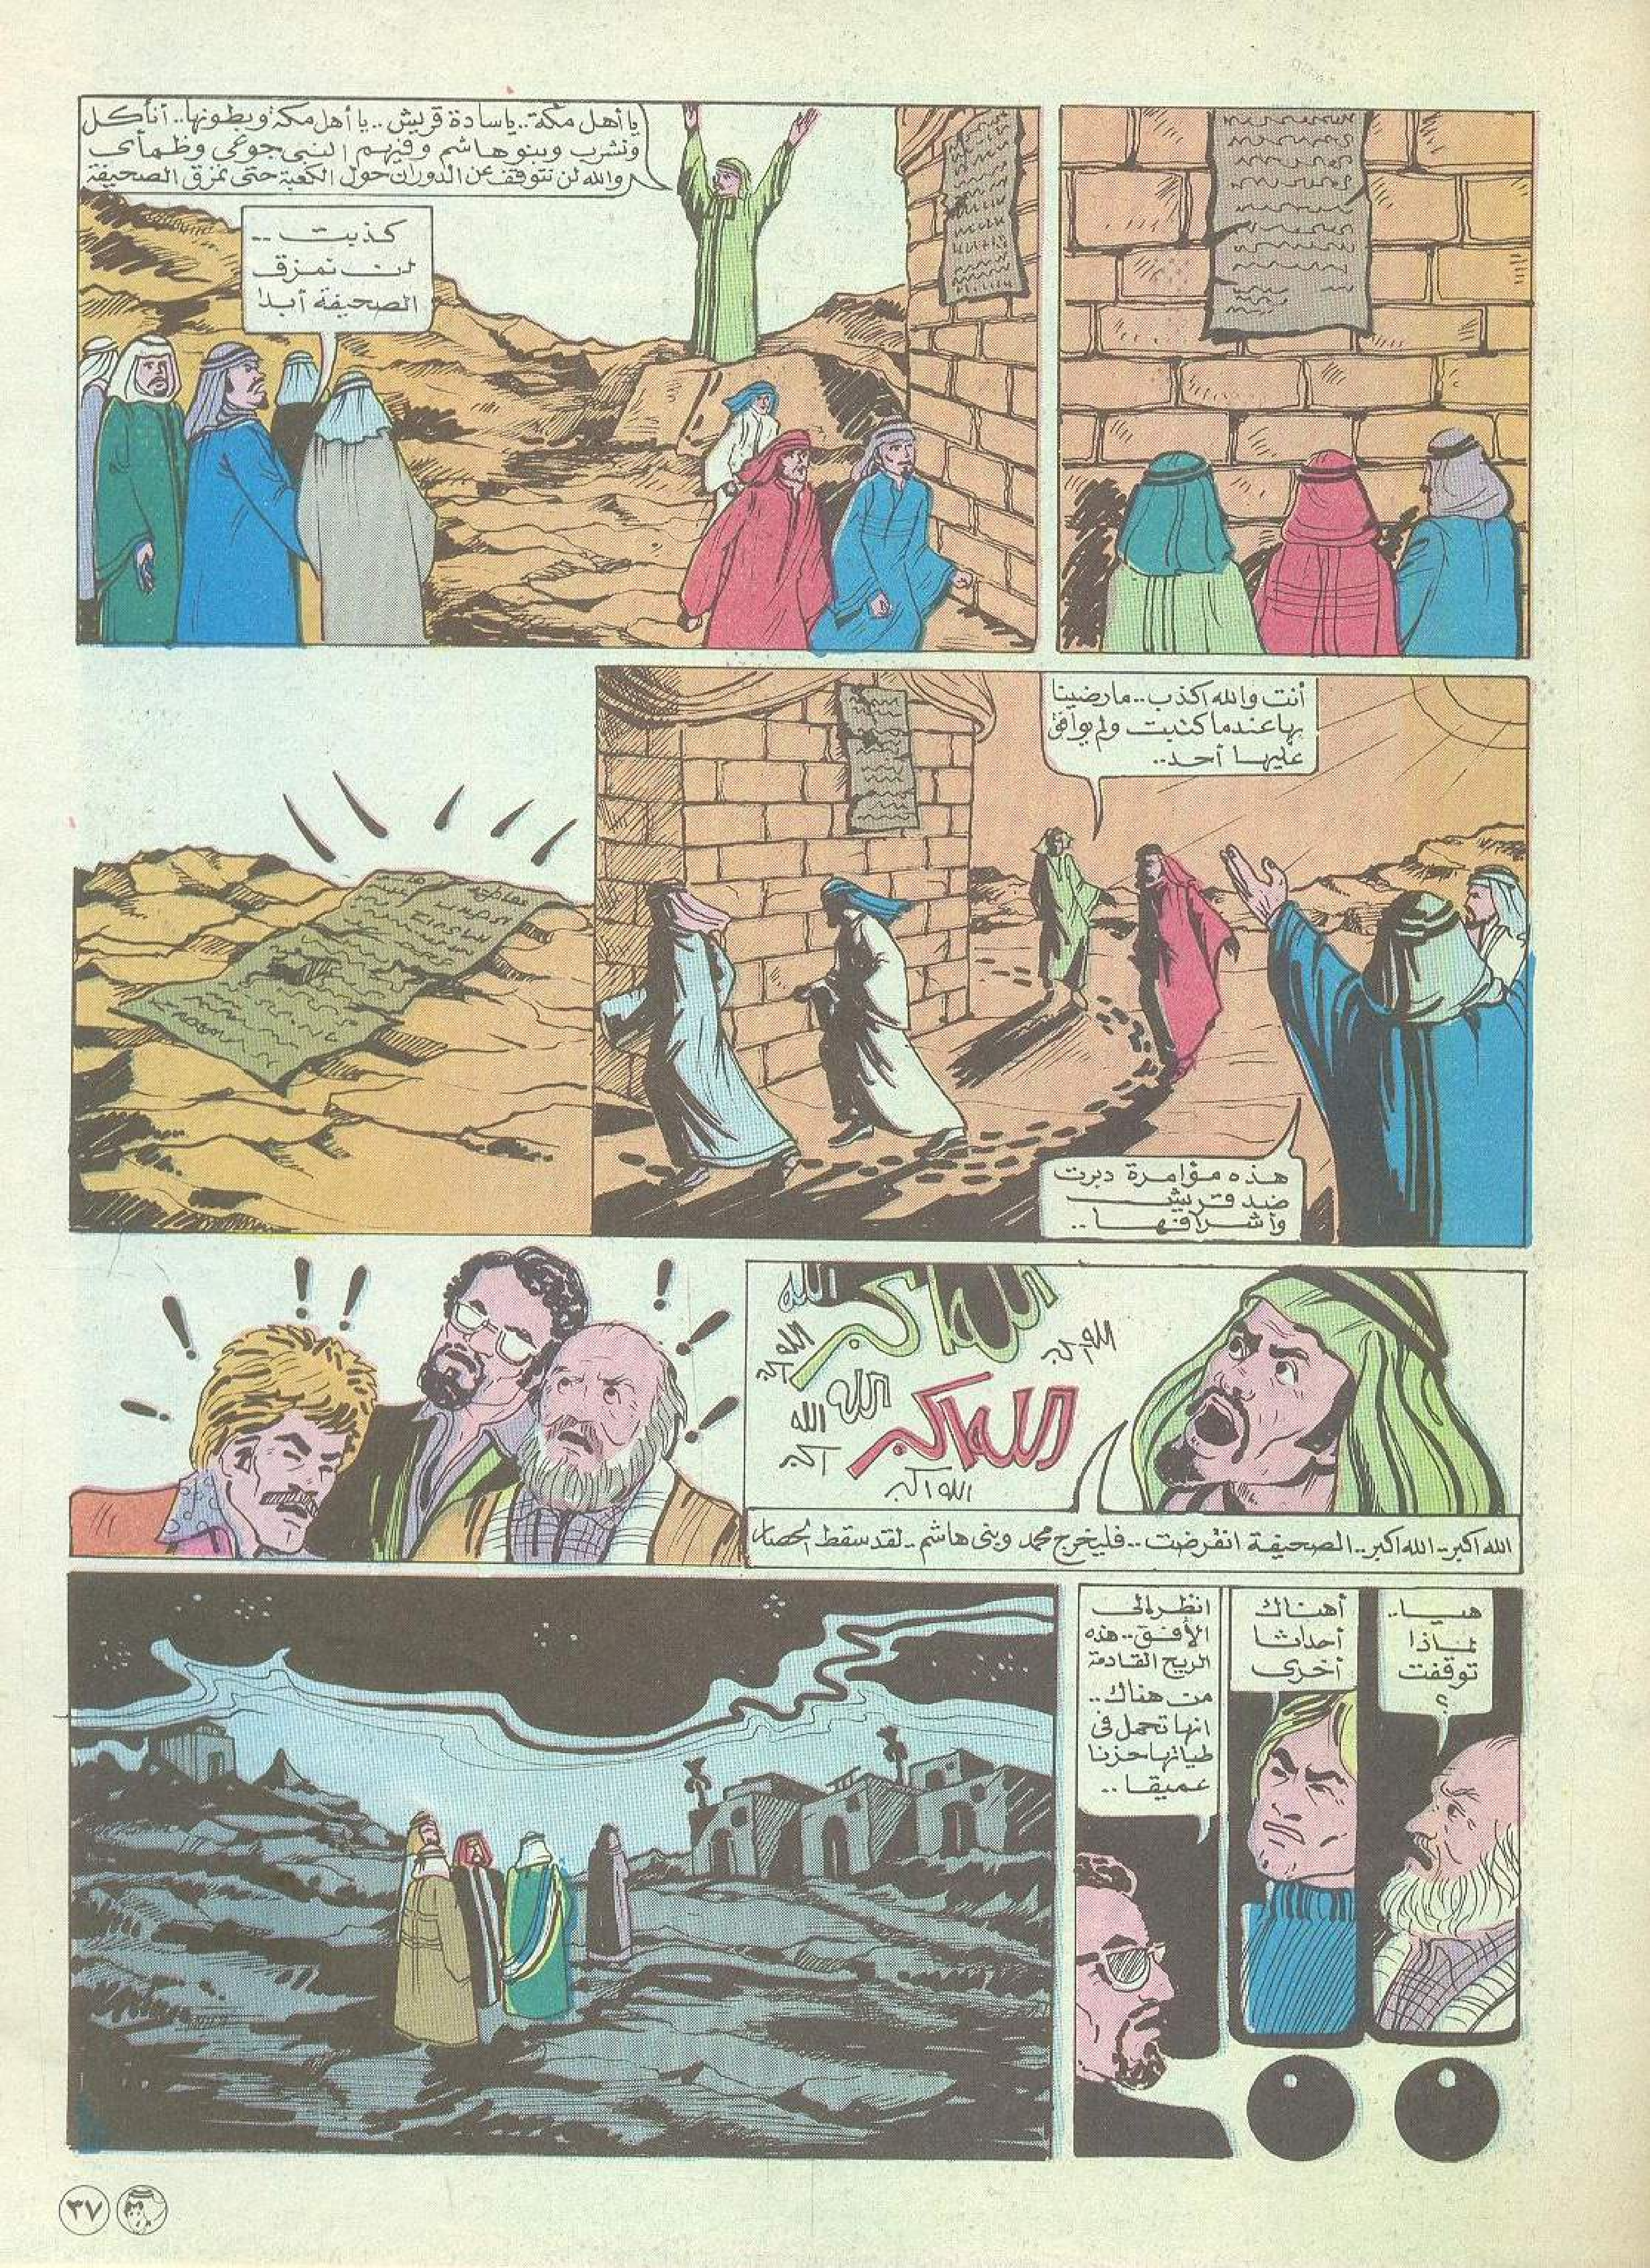 يا أهل مكة.. يا سادة قريش.. يا أهل مكة وبطونها.. أنأكل
ونشرب وبنو هاشم وفيهم النبى جوعى وظمأى
والله لن نتوقف عن الدوران حول الكعبة حتى نمزق الصحيفة
كذبت --
لن نمزق
الصحيفة أبدا
أنت والله اكذب.. ما رضينا
بها عندما كتبت ولم يوافق
عليها أحد..
هذه مؤامرة دبرت
ضد قريش
وأشرافها..
الله اكبر
الله
الله اكبر
الله اكبر
الله
الله اكبر
الله اكبر
الله اكبر
الله اكبر.. الله اكبر.. الصحيفة انقرضت.. فليخرج محمد وبنى هاشم.. لقد سقط الحصار
هيا..
لماذا
توقفت
؟
أهناك
أحداثا
أخرى
انظر إلى
الأفق.. هذه
الريح القادمة
من هناك..
انها تحمل فى
طياتها حزنا
عميقا..
٣٧